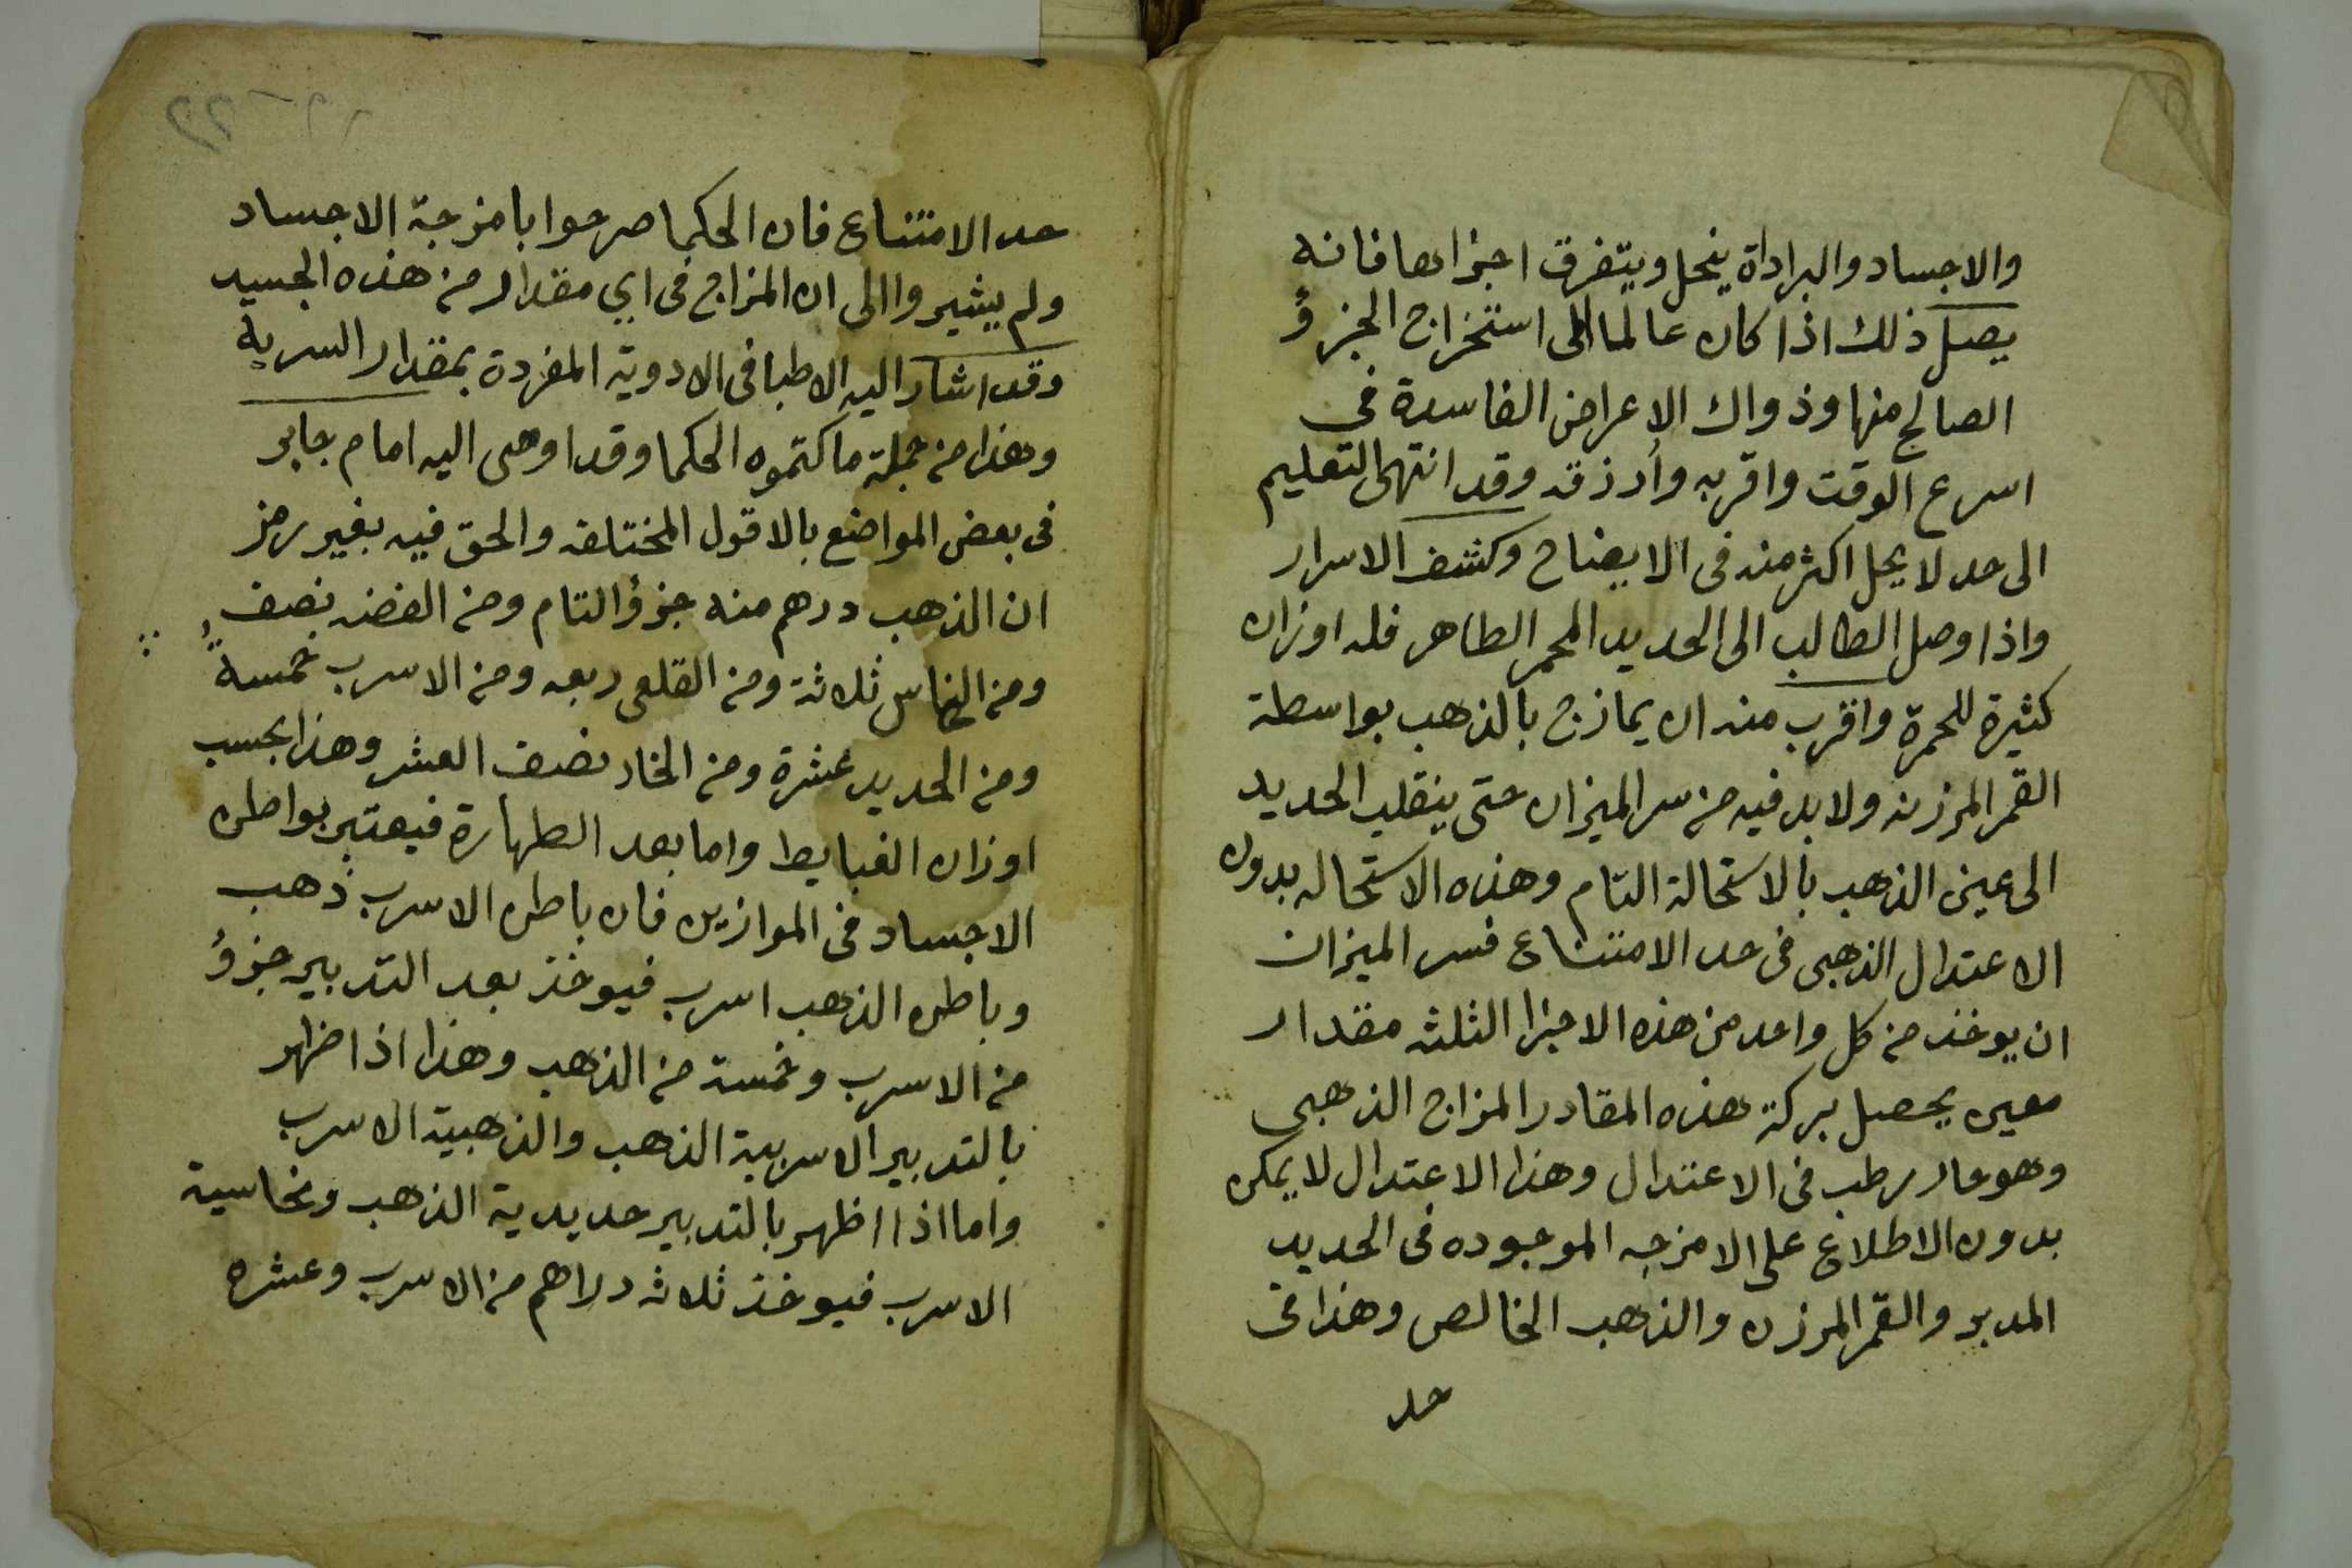 والاجساد والبراداة ينحل ويتفرق اجزاءها فانه
يصل ذلك اذا كان عالما الى استخراج الجزؤ
الصالح منها وذواك الاعراض الفاسدة في
اسرع الوقت واقربه وأرزقه وقد انتهى التعليم
الى حد لا يحل اكثر منه في الايضاح وكشف الاسرار
واذا وصل الطالب الى الحديد المحمر الطاهر فله اوزان
كثيرة للحمرة واقرب منه ان يمازج بالذهب بواسطة
القمر المرزن ولا بد فيه من سر الميزان حتى ينقلب الحديد
الى عين الذهب بالاستحالة التام وهذه الاستحاله بدون
الاعتدال الذهبي في حد الامتناع فسر الميزان
ان يوخذ من كل واحد من هذه الاجزا الثلثه مقدار
معين يحصل بركة هذه المقادر المزاج الذهبي
وهو حار رطب في الاعتدال وهذا الاعتدال لا يمكن
بدون الاطلاع على الامزجه الموجوده في الحديد
المدبر والقمر المرزن والذهب الخالص وهذا في
حد
حد الامتناع فان الحكما صرحوا بامزجة الاجساد
ولم يشيروا الى ان المزاج في اي مقدار من هذه الجسيد
وقد اشار اليه الاطبا في الادوية المفردة بمقدار السرية
وهذا من جملة ما كتموه الحكما وقد اوصى اليه امام جابر
في بعض المواضع بالاقول المختلفه والحق فيه بغير رمز
ان الذهب درهم منه جزؤ التام ومن الفضه نصف
ومن النحاس ثلاثة ومن القلعى ربعه ومن الاسرب خمسة
ومن الحديد عشرة ومن الخار نصف العشر وهذا بحسب
اوزان الغبايط واما بعد الطهارة فيعتبر بواطن
الاجساد في الموازين فان باطن الاسرب ذهب
وباطن الذهب اسرب فيوخذ بعد التدبير جزؤ
من الاسرب وخمسة من الذهب وهذا اذا ظهر
بالتدبير الاسربية الذهب والذهبية الاسرب
واما اذا اظهر بالتدبير حديدية الذهب ونحاسية
الاسرب فيوخذ ثلاثه دراهم من الاسرب وعشره